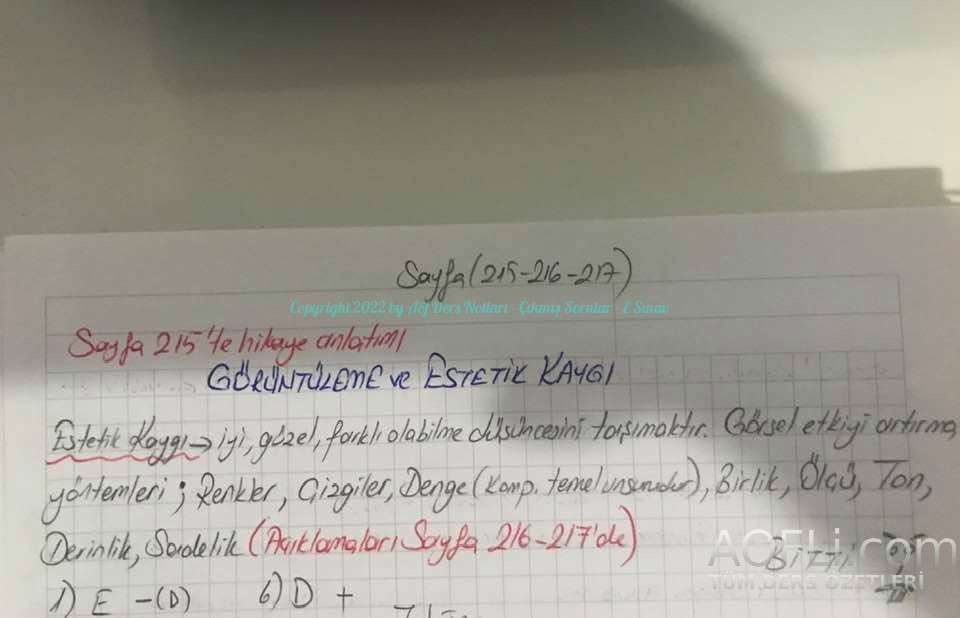 Sayfa (215-216-217)
Copyright 2022 by Aöf Ders Notları - Çıkmış Sorular - E Sınav
Sayfa 215'te hikaye anlatımı
GÖRÜNTÜLEME ve ESTETİK KAYGI
Estetik Kaygı → iyi, güzel, farklı olabilme düşüncesini taşımaktır. Görsel etkiyi artırma
yöntemleri ; Renkler, Çizgiler, Denge (Komp. temel unsurudur), Birlik, Ölçü, Ton,
Derinlik, Sadelik (Açıklamaları Sayfa 216-217'de)
BİTTİ
AOFLi.com
TÜM DERS ÖZETLERİ
1) E -(D) 6) D +